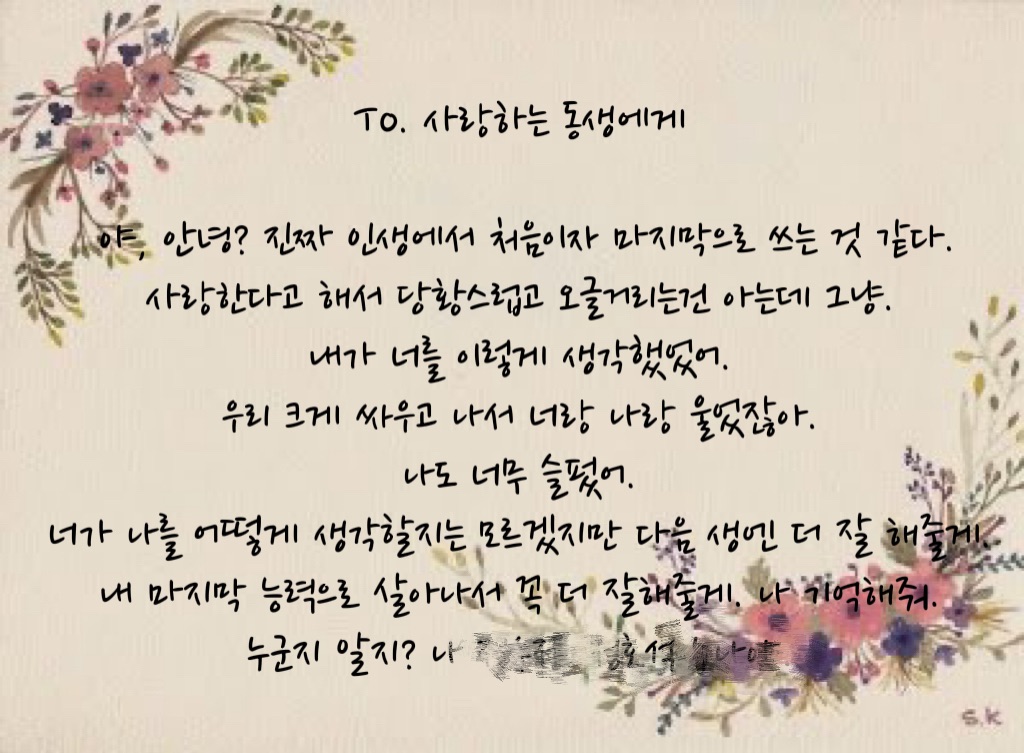 To. 사랑하는 동생에게
야, 안녕? 진짜 인생에서 처음이자 마지막으로 쓰는 것 같다.
사랑한다고 해서 당황스럽고 오글거리는건 아는데 그냥.
내가 너를 이렇게 생각했었어.
우리 크게 싸우고 나서 너랑 나랑 울었잖아.
나도 너무 슬펐어.
너가 나를 어떻게 생각할지는 모르겠지만 다음 생엔 더 잘 해줄게.
내 마지막 능력으로 살아나서 꼭 더 잘해줄게. 나 기억해줘.
누군지 알지? 나
s.k